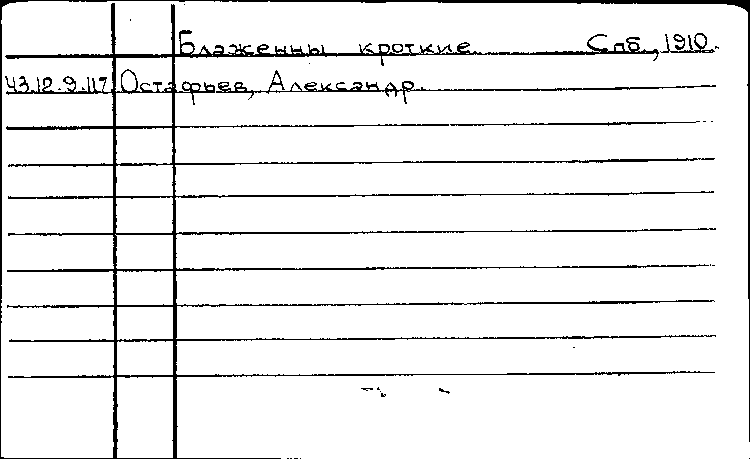 Блаженны кроткие. Спб., 1910.
43.12.9.117 Остафьев, Александр.